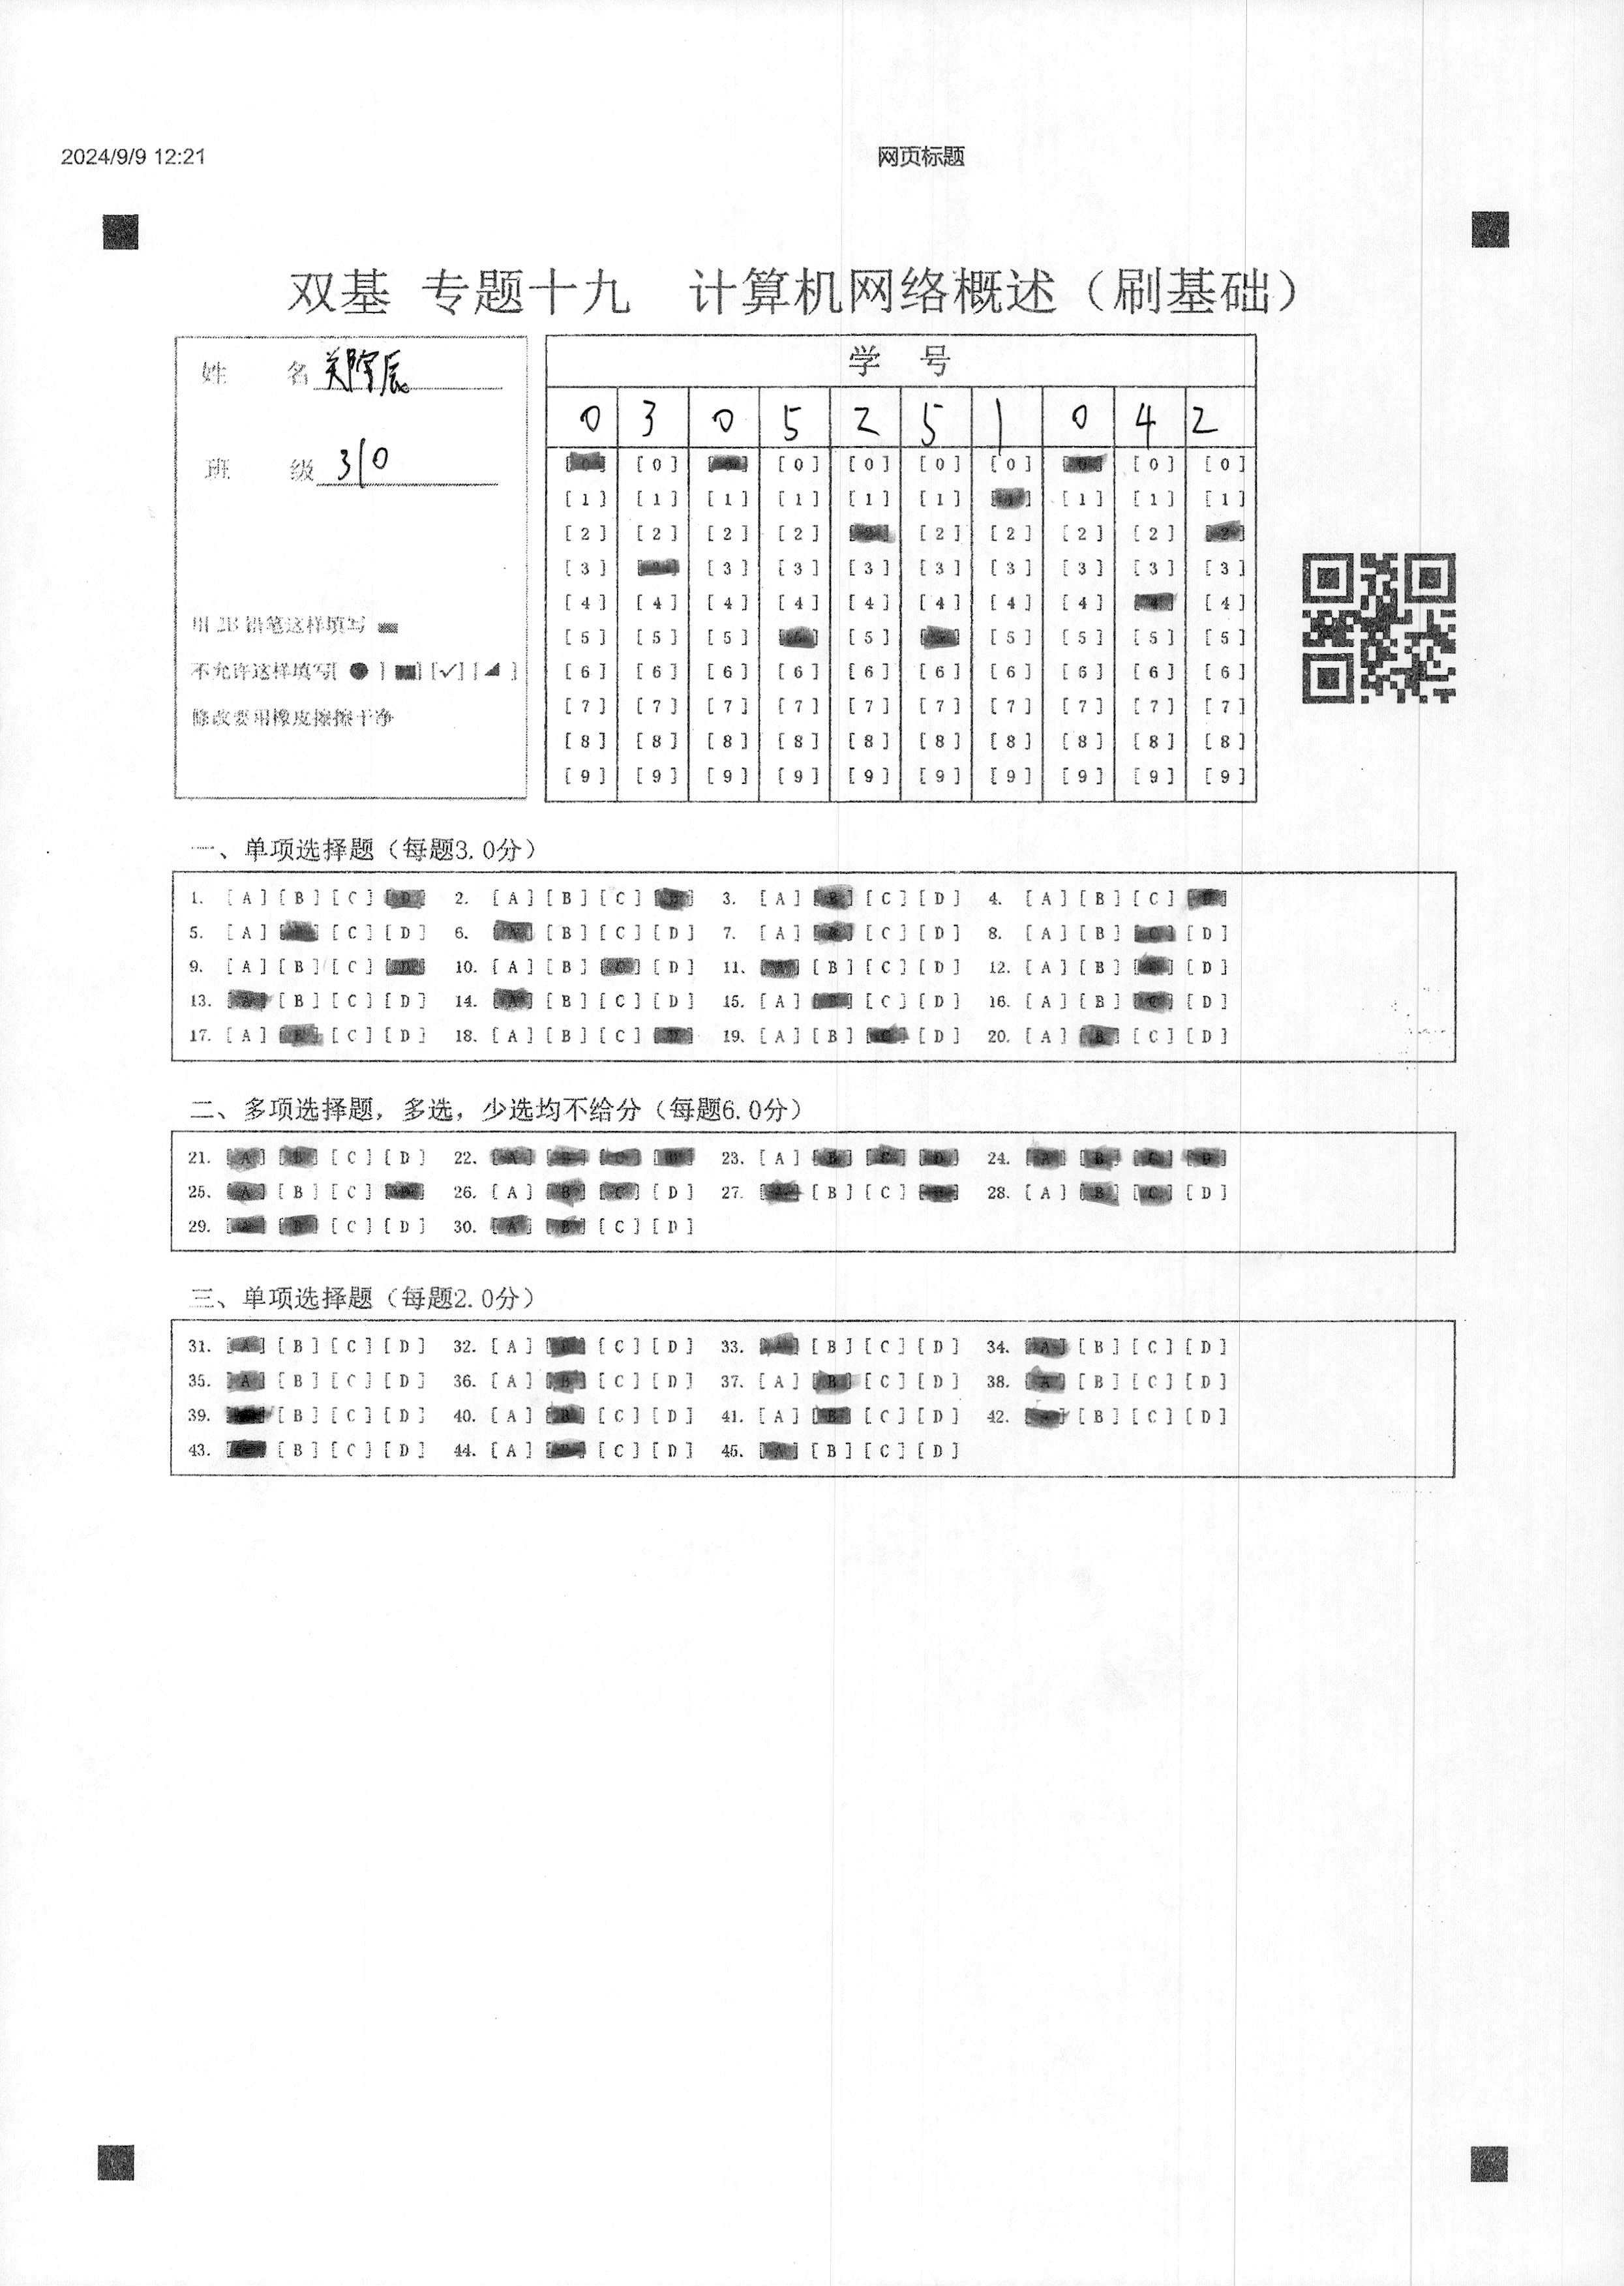 2024/9/9 12:21 网页标题
双基 专题十九 计算机网络概述（刷基础）
姓 名 郑宇辰
班 级 310
用 2B 铅笔这样填写
不允许这样填写[ ● ] [■] [✓] [◢ ]
修改要用橡皮擦擦干净
学 号
0 3 0 5 2 5 1 0 4 2
[0] [0] [0] [0] [0] [0] [0] [0] [0] [0]
[1] [1] [1] [1] [1] [1] [1] [1] [1] [1]
[2] [2] [2] [2] [2] [2] [2] [2] [2] [2]
[3] [3] [3] [3] [3] [3] [3] [3] [3] [3]
[4] [4] [4] [4] [4] [4] [4] [4] [4] [4]
[5] [5] [5] [5] [5] [5] [5] [5] [5] [5]
[6] [6] [6] [6] [6] [6] [6] [6] [6] [6]
[7] [7] [7] [7] [7] [7] [7] [7] [7] [7]
[8] [8] [8] [8] [8] [8] [8] [8] [8] [8]
[9] [9] [9] [9] [9] [9] [9] [9] [9] [9]
一、单项选择题（每题3.0分）
1. [A] [B] [C] [D] 2. [A] [B] [C] [D] 3. [A] [B] [C] [D] 4. [A] [B] [C] [D]
5. [A] [B] [C] [D] 6. [A] [B] [C] [D] 7. [A] [B] [C] [D] 8. [A] [B] [C] [D]
9. [A] [B] [C] [D] 10. [A] [B] [C] [D] 11. [A] [B] [C] [D] 12. [A] [B] [C] [D]
13. [A] [B] [C] [D] 14. [A] [B] [C] [D] 15. [A] [B] [C] [D] 16. [A] [B] [C] [D]
17. [A] [B] [C] [D] 18. [A] [B] [C] [D] 19. [A] [B] [C] [D] 20. [A] [B] [C] [D]
二、多项选择题，多选，少选均不给分（每题6.0分）
21. [A] [B] [C] [D] 22. [A] [B] [C] [D] 23. [A] [B] [C] [D] 24. [A] [B] [C] [D]
25. [A] [B] [C] [D] 26. [A] [B] [C] [D] 27. [A] [B] [C] [D] 28. [A] [B] [C] [D]
29. [A] [B] [C] [D] 30. [A] [B] [C] [D]
三、单项选择题（每题2.0分）
31. [A] [B] [C] [D] 32. [A] [B] [C] [D] 33. [A] [B] [C] [D] 34. [A] [B] [C] [D]
35. [A] [B] [C] [D] 36. [A] [B] [C] [D] 37. [A] [B] [C] [D] 38. [A] [B] [C] [D]
39. [A] [B] [C] [D] 40. [A] [B] [C] [D] 41. [A] [B] [C] [D] 42. [A] [B] [C] [D]
43. [A] [B] [C] [D] 44. [A] [B] [C] [D] 45. [A] [B] [C] [D]